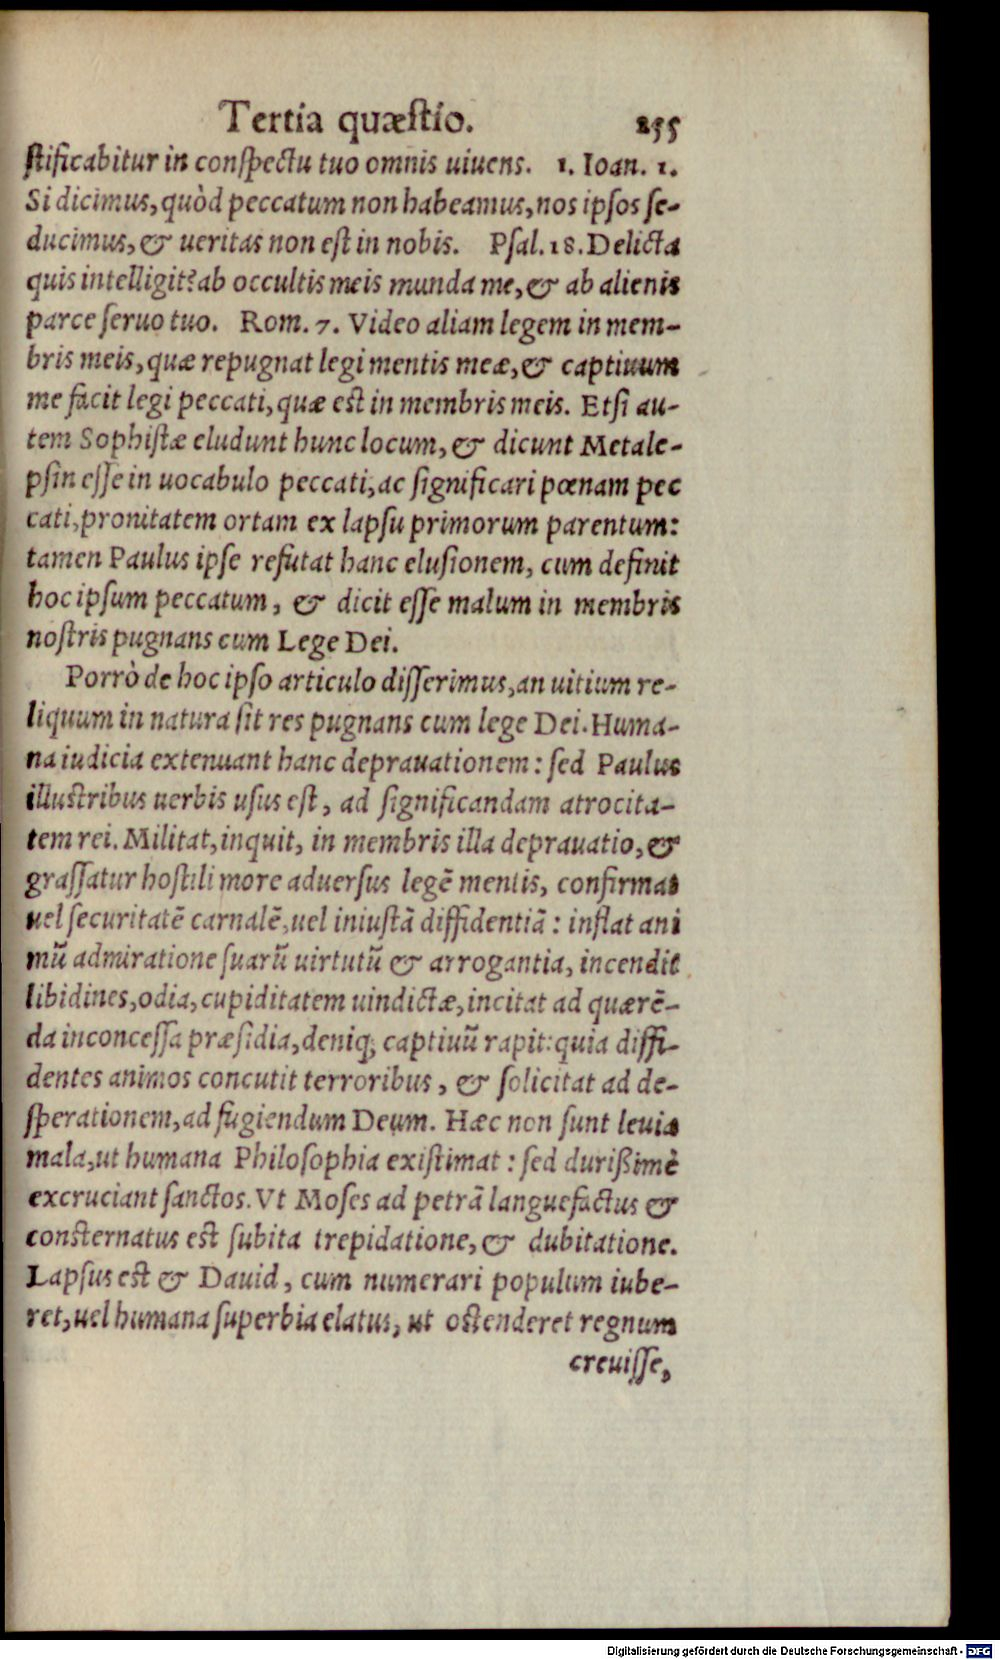 Tertia quæstio. 255
ſtificabitur in conſpectu tuo omnis uiuens. 1. Ioan. 1.
Si dicimus, quòd peccatum non habeamus, nos ipſos ſe-
ducimus, & ueritas non eſt in nobis. Pſal. 18. Delicta
quis intelligit? ab occultis meis munda me, & ab alienis
parce ſeruo tuo. Rom. 7. Video aliam legem in mem-
bris meis, quæ repugnat legi mentis meæ, & captiuum
me facit legi peccati, quæ eſt in membris meis. Etſi au-
tem Sophiſtæ eludunt hunc locum, & dicunt Metale-
pſin eſſe in uocabulo peccati, ac ſignificari pœnam pec
cati, pronitatem ortam ex lapſu primorum parentum:
tamen Paulus ipſe refutat hanc eluſionem, cum definit
hoc ipſum peccatum, & dicit eſſe malum in membris
noſtris pugnans cum Lege Dei.
Porrò de hoc ipſo articulo diſſerimus, an uitium re-
liquum in natura ſit res pugnans cum lege Dei. Huma-
na iudicia extenuant hanc deprauationem: ſed Paulus
illuſtribus uerbis uſus eſt, ad ſignificandam atrocita-
tem rei. Militat, inquit, in membris illa deprauatio, &
graſſatur hoſtili more aduerſus legē mentis, confirmat
uel ſecuritatē carnalē, uel iniuſtā diffidentiā: inflat ani
mū admiratione ſuarū uirtutū & arrogantia, incendit
libidines, odia, cupiditatem uindictæ, incitat ad quærē-
da inconceſſa præſidia, deniq; captiuū rapit: quia diffi-
dentes animos concutit terroribus, & ſolicitat ad de-
ſperationem, ad fugiendum Deum. Hæc non ſunt leuia
mala, ut humana Philoſophia exiſtimat: ſed durißimè
excruciant ſanctos. Vt Moſes ad petrā languefactus &
conſternatus eſt ſubita trepidatione, & dubitatione.
Lapſus eſt & Dauid, cum numerari populum iube-
ret, uel humana ſuperbia elatus, ut oſtenderet regnum
creuiſſe,
Digitalisierung gefördert durch die Deutsche Forschungsgemeinschaft - DFG